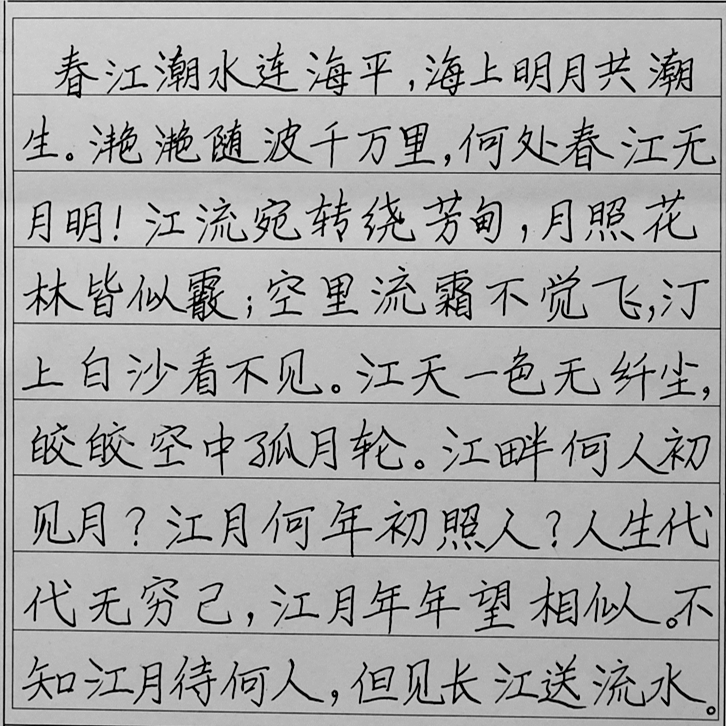 春江潮水连海平,海上明月共潮
生。滟滟随波千万里,何处春江无
月明!江流宛转绕芳甸,月照花
林皆似霰;空里流霜不觉飞,汀
上白沙看不见。江天一色无纤尘,
皎皎空中孤月轮。江畔何人初
见月?江月何年初照人?人生代
代无穷己,江月年年望相似。不
知江月待何人,但见长江送流水。